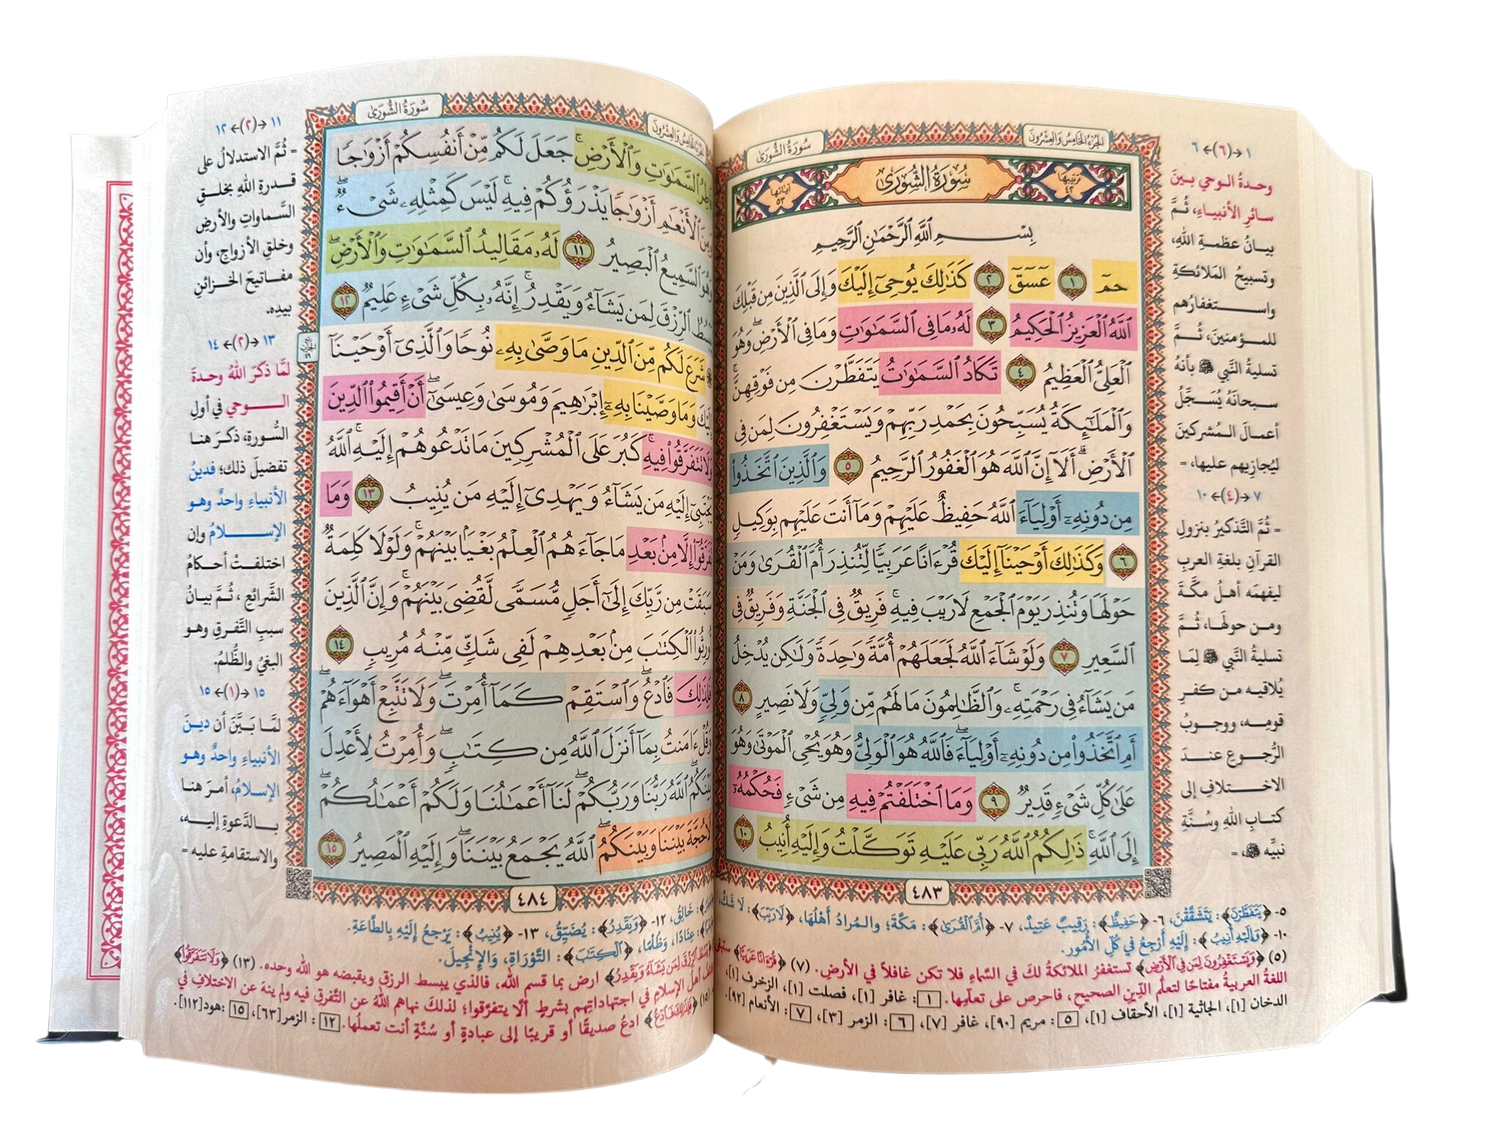 سُورَةُ الشُّورَىٰ
الجُزْءُ الخَامِسُ وَالعِشْرُونَ
تَرْتِيبُهَا ٤٢
سُورَةُ الشُّورَىٰ
آيَاتُهَا ٥٣
بِسْمِ ٱللَّهِ ٱلرَّحْمَٰنِ ٱلرَّحِيمِ
حمٓ ١ عٓسٓقٓ ٢ كَذَٰلِكَ يُوحِىٓ إِلَيْكَ وَإِلَى ٱلَّذِينَ مِن قَبْلِكَ
ٱللَّهُ ٱلْعَزِيزُ ٱلْحَكِيمُ ٣ لَهُۥ مَا فِى ٱلسَّمَٰوَٰتِ وَمَا فِى ٱلْأَرْضِۖ وَهُوَ
ٱلْعَلِىُّ ٱلْعَظِيمُ ٤ تَكَادُ ٱلسَّمَٰوَٰتُ يَتَفَطَّرْنَ مِن فَوْقِهِنَّۚ
وَٱلْمَلَٰٓئِكَةُ يُسَبِّحُونَ بِحَمْدِ رَبِّهِمْ وَيَسْتَغْفِرُونَ لِمَن فِى
ٱلْأَرْضِۗ أَلَآ إِنَّ ٱللَّهَ هُوَ ٱلْغَفُورُ ٱلرَّحِيمُ ٥ وَٱلَّذِينَ ٱتَّخَذُوا۟
مِن دُونِهِۦٓ أَوْلِيَآءَ ٱللَّهُ حَفِيظٌ عَلَيْهِمْ وَمَآ أَنتَ عَلَيْهِم بِوَكِيلٍ
٦ وَكَذَٰلِكَ أَوْحَيْنَآ إِلَيْكَ قُرْءَانًا عَرَبِيًّا لِّتُنذِرَ أُمَّ ٱلْقُرَىٰ وَمَنْ
حَوْلَهَا وَتُنذِرَ يَوْمَ ٱلْجَمْعِ لَا رَيْبَ فِيهِۚ فَرِيقٌ فِى ٱلْجَنَّةِ وَفَرِيقٌ فِى
ٱلسَّعِيرِ ٧ وَلَوْ شَآءَ ٱللَّهُ لَجَعَلَهُمْ أُمَّةً وَٰحِدَةً وَلَٰكِن يُدْخِلُ
مَن يَشَآءُ فِى رَحْمَتِهِۦۚ وَٱلظَّٰلِمُونَ مَا لَهُم مِّن وَلِىٍّ وَلَا نَصِيرٍ ٨
أَمِ ٱتَّخَذُوا۟ مِن دُونِهِۦٓ أَوْلِيَآءَۖ فَٱللَّهُ هُوَ ٱلْوَلِىُّ وَهُوَ يُحْىِ ٱلْمَوْتَىٰ وَهُوَ
عَلَىٰ كُلِّ شَىْءٍ قَدِيرٌ ٩ وَمَا ٱخْتَلَفْتُمْ فِيهِ مِن شَىْءٍ فَحُكْمُهُۥٓ
إِلَى ٱللَّهِۚ ذَٰلِكُمُ ٱللَّهُ رَبِّى عَلَيْهِ تَوَكَّلْتُ وَإِلَيْهِ أُنِيبُ ١٠
٤٨٣
١ ← (٦) ← ٦
وحدةُ الوحي بينَ
سائرِ الأنبياءِ، ثُمَّ
بيانُ عظمةِ اللهِ،
وتسبيحُ المَلائكةِ
واستغفارُهم
للمؤمنينَ، ثُمَّ
تسليةُ النَّبي ﷺ بأنهُ
سبحانَهُ يُسجِّلُ
أعمالَ المُشركينَ
ليُجازِيهم عليها، =
٧ ← (٤) ← ١٠
= ثُمَّ التَّذكيرُ بنزولِ
القرآنِ بلغةِ العربِ
ليفهمَه أهلُ مكَّةَ
ومن حولَها، ثُمَّ
تسليةُ النَّبي ﷺ لِمَا
يُلاقيه من كفرِ
قومِه، ووجوبُ
الرُّجوعِ عندَ
الاختلافِ إلى
كتابِ اللهِ وسُنَّةِ
نبيِّه ﷺ، =
٥- ﴿يَتَفَطَّرْنَ﴾: يَتَشَقَّقْنَ، ٦- ﴿حَفِيظٌ﴾: رَقِيبٌ عَتِيدٌ، ٧- ﴿أُمَّ ٱلْقُرَىٰ﴾: مَكَّةَ، والمُرادُ أَهْلُهَا، ﴿لَا رَيْبَ﴾: لَا شَكَّ،
١٠- ﴿وَإِلَيْهِ أُنِيبُ﴾: إِلَيْهِ أَرْجِعُ فِي كُلِّ الأُمُورِ.
(٥) ﴿وَيَسْتَغْفِرُونَ لِمَن فِى ٱلْأَرْضِ﴾ تستغفر الملائكة لك في السَّماءِ فلا تكن غافلاً في الأرضِ. (٧) ﴿قُرْءَانًا عَرَبِيًّا﴾
اللغةُ العربيةُ مفتاحًا لتعلُّمِ الدِّين الصحيحِ، فاحرص على تعلُّمِها. ١: غافر [١]، فصلت [١]، الزخرف [١]،
الدخان [١]، الجاثية [١]، الأحقاف [١]، ٥: مريم [٩٠]، غافر [٧]، ٦: الزمر [٣]، ٧: الأنعام [٩٢].
سُورَةُ الشُّورَىٰ
الجُزْءُ الخَامِسُ وَالعِشْرُونَ
ٱلسَّمَٰوَٰتِ وَٱلْأَرْضِۚ جَعَلَ لَكُم مِّنْ أَنفُسِكُمْ أَزْوَٰجًا
وَمِنَ ٱلْأَنْعَٰمِ أَزْوَٰجًا يَذْرَؤُكُمْ فِيهِۚ لَيْسَ كَمِثْلِهِۦ شَىْءٌۖ
وَهُوَ ٱلسَّمِيعُ ٱلْبَصِيرُ ١١ لَهُۥ مَقَالِيدُ ٱلسَّمَٰوَٰتِ وَٱلْأَرْضِۖ
ٱلرِّزْقَ لِمَن يَشَآءُ وَيَقْدِرُۚ إِنَّهُۥ بِكُلِّ شَىْءٍ عَلِيمٌ ١٢
شَرَعَ لَكُم مِّنَ ٱلدِّينِ مَا وَصَّىٰ بِهِۦ نُوحًا وَٱلَّذِىٓ أَوْحَيْنَآ
إِلَيْكَ وَمَا وَصَّيْنَا بِهِۦٓ إِبْرَٰهِيمَ وَمُوسَىٰ وَعِيسَىٰٓۖ أَنْ أَقِيمُوا۟ ٱلدِّينَ
وَلَا تَتَفَرَّقُوا۟ فِيهِۚ كَبُرَ عَلَى ٱلْمُشْرِكِينَ مَا تَدْعُوهُمْ إِلَيْهِۚ ٱللَّهُ
يَجْتَبِىٓ إِلَيْهِ مَن يَشَآءُ وَيَهْدِىٓ إِلَيْهِ مَن يُنِيبُ ١٣ وَمَا
تَفَرَّقُوٓا۟ إِلَّا مِنۢ بَعْدِ مَا جَآءَهُمُ ٱلْعِلْمُ بَغْيًۢا بَيْنَهُمْۚ وَلَوْلَا كَلِمَةٌ
سَبَقَتْ مِن رَّبِّكَ إِلَىٰٓ أَجَلٍ مُّسَمًّى لَّقُضِىَ بَيْنَهُمْۚ وَإِنَّ ٱلَّذِينَ
أُورِثُوا۟ ٱلْكِتَٰبَ مِنۢ بَعْدِهِمْ لَفِى شَكٍّ مِّنْهُ مُرِيبٍ ١٤
فَلِذَٰلِكَ فَٱدْعُۖ وَٱسْتَقِمْ كَمَآ أُمِرْتَۖ وَلَا تَتَّبِعْ أَهْوَآءَهُمْۖ
وَقُلْ ءَامَنتُ بِمَآ أَنزَلَ ٱللَّهُ مِن كِتَٰبٍۖ وَأُمِرْتُ لِأَعْدِلَ
بَيْنَكُمُۖ ٱللَّهُ رَبُّنَا وَرَبُّكُمْۖ لَنَآ أَعْمَٰلُنَا وَلَكُمْ أَعْمَٰلُكُمْۖ
لَا حُجَّةَ بَيْنَنَا وَبَيْنَكُمُۖ ٱللَّهُ يَجْمَعُ بَيْنَنَاۖ وَإِلَيْهِ ٱلْمَصِيرُ ١٥
٤٨٤
١١ ← (٢) ← ١٢
= ثُمَّ الاستدلالُ على
قدرةِ اللهِ بخلقِ
السَّماواتِ والأرضِ
وخلقِ الأزواجِ، وأن
مفاتيحَ الخزائنِ
بيدِه.
١٣ ← (٢) ← ١٤
لمَّا ذكرَ اللهُ وحدةَ
الوحي في أولِ
السُّورةِ، ذكرَ هنا
تفصيلَ ذلك؛ فدينُ
الأنبياءِ واحدٌ وهو
الإسلامُ وإن
اختلفتْ أحكامُ
الشَّرائعِ، ثُمَّ بيانُ
سببِ التَّفرقِ وهو
البغيُ والظُّلمُ.
١٥ ← (١) ← ١٥
لمَّا بَيَّنَ أن دينَ
الأنبياءِ واحدٌ وهو
الإسلامُ، أمرَ هنا
بالدَّعوةِ إليه،
والاستقامةِ عليه =
خَالِقُ، ١٢- ﴿وَيَقْدِرُ﴾: يُضَيِّقُ، ١٣- ﴿يُنِيبُ﴾: يَرْجِعُ إِلَيْهِ بِالطَّاعَةِ.
عِنَادًا، وَظُلْمًا، ﴿ٱلْكِتَٰبَ﴾: التَّوْرَاةَ، وَالإِنْجِيلَ.
ٱلرِّزْقَ لِمَن يَشَآءُ وَيَقْدِرُ﴾ ارض بما قسم الله، فالذي يبسط الرزق ويقبضه هو الله وحده. (١٣) ﴿وَلَا تَتَفَرَّقُوا۟﴾
أهل الإسلامِ في اجتهاداتِهِم بشرطِ ألَّا يتفرَّقوا؛ لذلكَ نهاهم اللهُ عن التَّفرقِ فيه ولم ينهَ عن الاختلافِ في
(١٥) ﴿فَلِذَٰلِكَ فَٱدْعُ﴾ ادعُ صديقًا أو قريبًا إلى عبادةٍ أو سُنَّةٍ أنت تعملُها. ١٢: الزمر [٦٣]، ١٥: هود [١١٢].